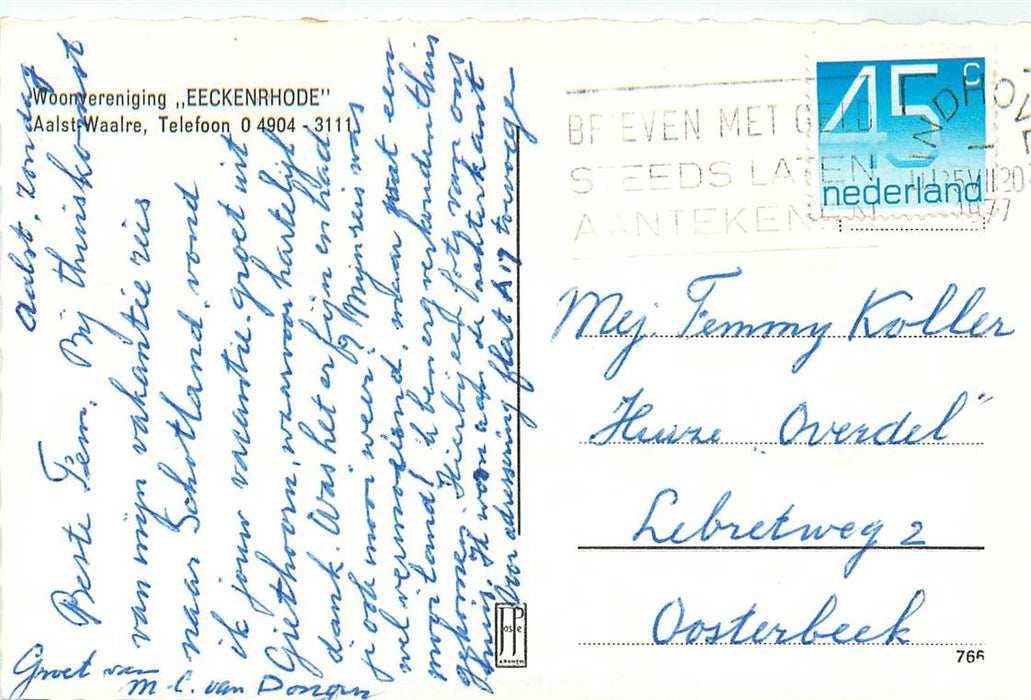 Woonvereniging „EECKENRHODE"
Aalst-Waalre, Telefoon 0 4904 - 3111
Aalst, Zondag
Beste Fem, Bij thuiskomst
van mijn vakantie reis
naar Schotland, vond
ik jouw vacantie-groet uit
Giethoorn, waarvoor hartelijk
dank. Was het er fijn en had
je ook mooi weer? Mijn reis was
wel vermoeiend, maar wat een
mooi land! ik ben erg verkouden thuis
gekomen. Hierbij een foto van ons
huis. Ik woon aan de achterkant
Voor adressering flat A 17 toevoegen
Groet van
M. C. van Dongen
BRIEVEN MET GELD
STEEDS LATEN
AANTEKENEN
45 c
nederland
INDHOV
25 VII 20
1977
Mej. Femmy Koller
Huize „Overdel"
Lebretweg 2
Oosterbeek
JosPe
ARNHEM
766